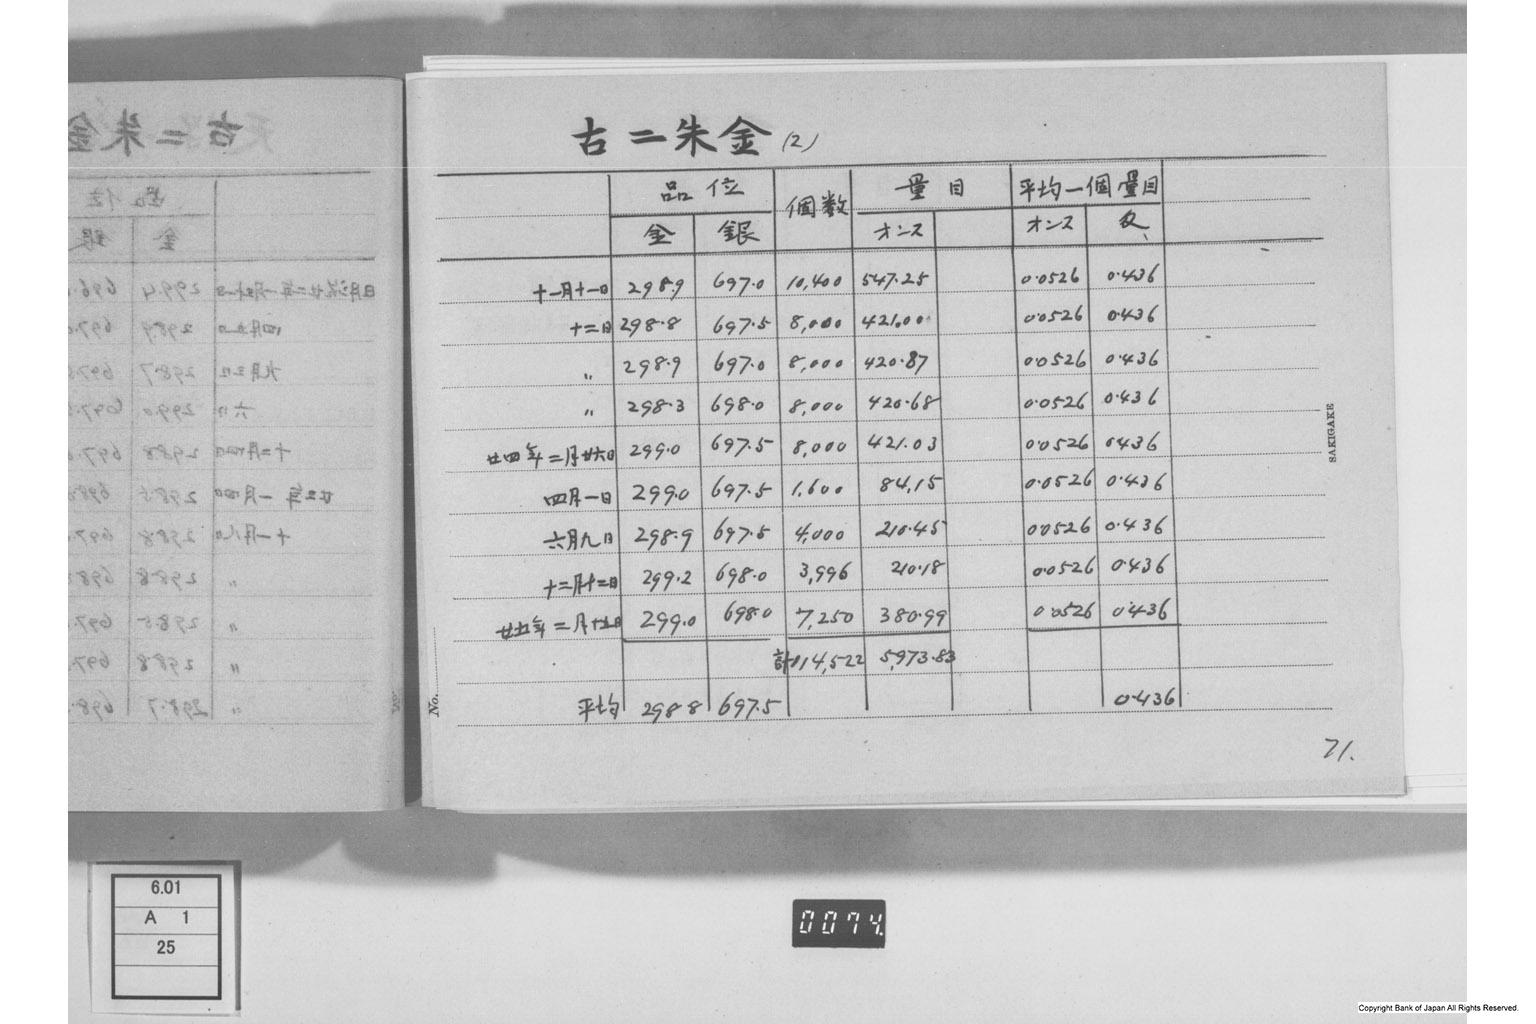 古二朱金 (2)
品位 個数 量目 平均一個量目
金 銀 オンス オンス 匁
十一月十一日 298.9 697.0 10,400 547.25 0.0526 0.436
十二日 298.8 697.5 8,000 421.00 0.0526 0.436
〃 298.9 697.0 8,000 420.87 0.0526 0.436
〃 298.3 698.0 8,000 420.68 0.0526 0.436
廿四年二月廿六日 299.0 697.5 8,000 421.03 0.0526 0.436
四月一日 299.0 697.5 1,600 84.15 0.0526 0.436
六月九日 298.9 697.5 4,000 210.45 0.0526 0.436
十二月十二日 299.2 698.0 3,996 210.18 0.0526 0.436
廿五年二月十五日 299.0 698.0 7,250 380.99 0.0526 0.436
計 114,522 5,973.83
平均 298.8 697.5 0.436
71.
No.
SAKIGAKE
6.01
A 1
25
0074.
Copyright Bank of Japan All Rights Reserved.